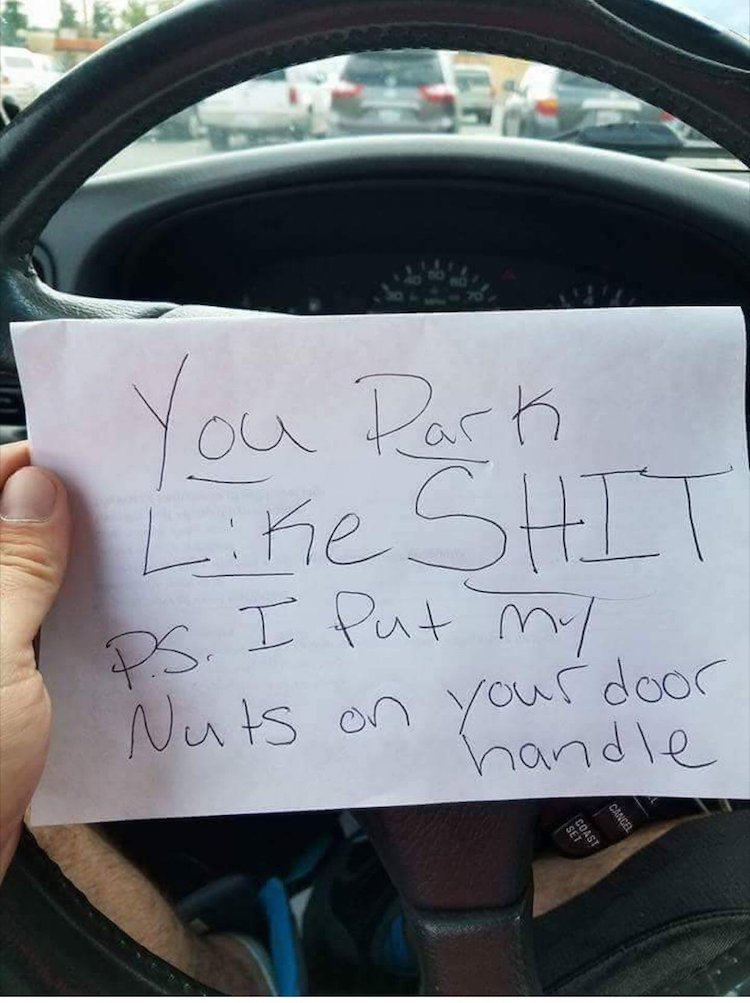 You Park
Like SHIT
P.S. I Put my
Nuts on your door
handle
40 50 60
30 70
MPH
CANCEL
COAST
SET